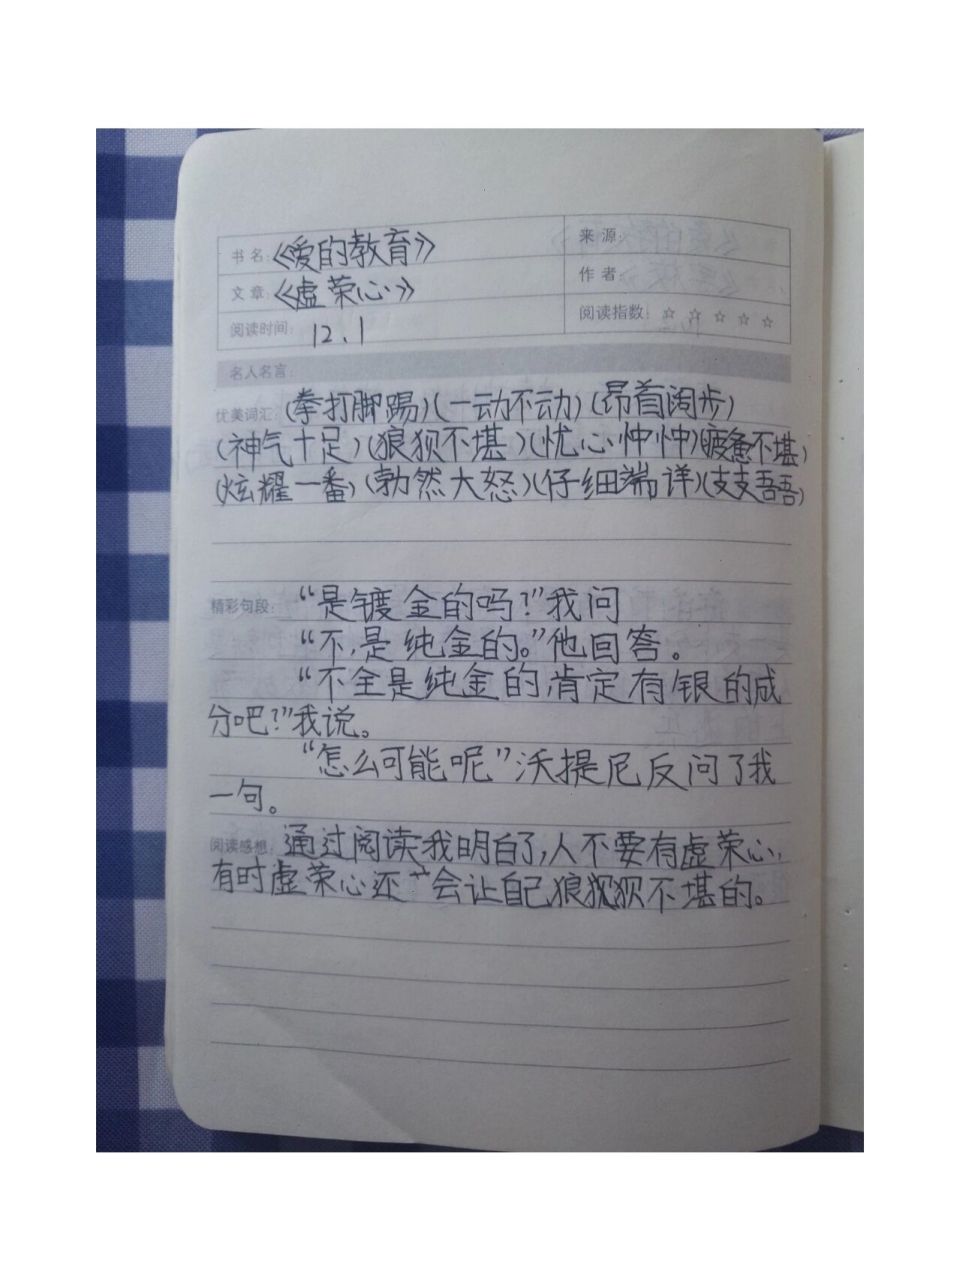 书名:《爱的教育》
来源:
文章:《虚荣心》
作者:
阅读时间: 12、1
阅读指数: ☆ ☆ ☆ ☆ ☆
名人名言:
优美词汇: (拳打脚踢)(一动不动)(昂首阔步)
(神气十足)(狼狈不堪)(忧心忡忡)(疲惫不堪)
(炫耀一番)(勃然大怒)(仔细端详)(支支吾吾)
精彩句段: “是镀金的吗?”我问
“不,是纯金的。”他回答。
“不全是纯金的,肯定有银的成
分吧?”我说。
“怎么可能呢”沃提尼反问了我
一句。
阅读感想: 通过阅读我明白了,人不要有虚荣心,
有时虚荣心还会让自己狼狈不堪的。